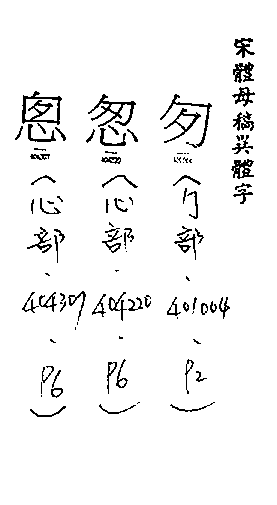 宋體母稿異體字
匆(勹部、401004、P2)
怱(心部、404220、P6)
悤(心部、404307、P6)